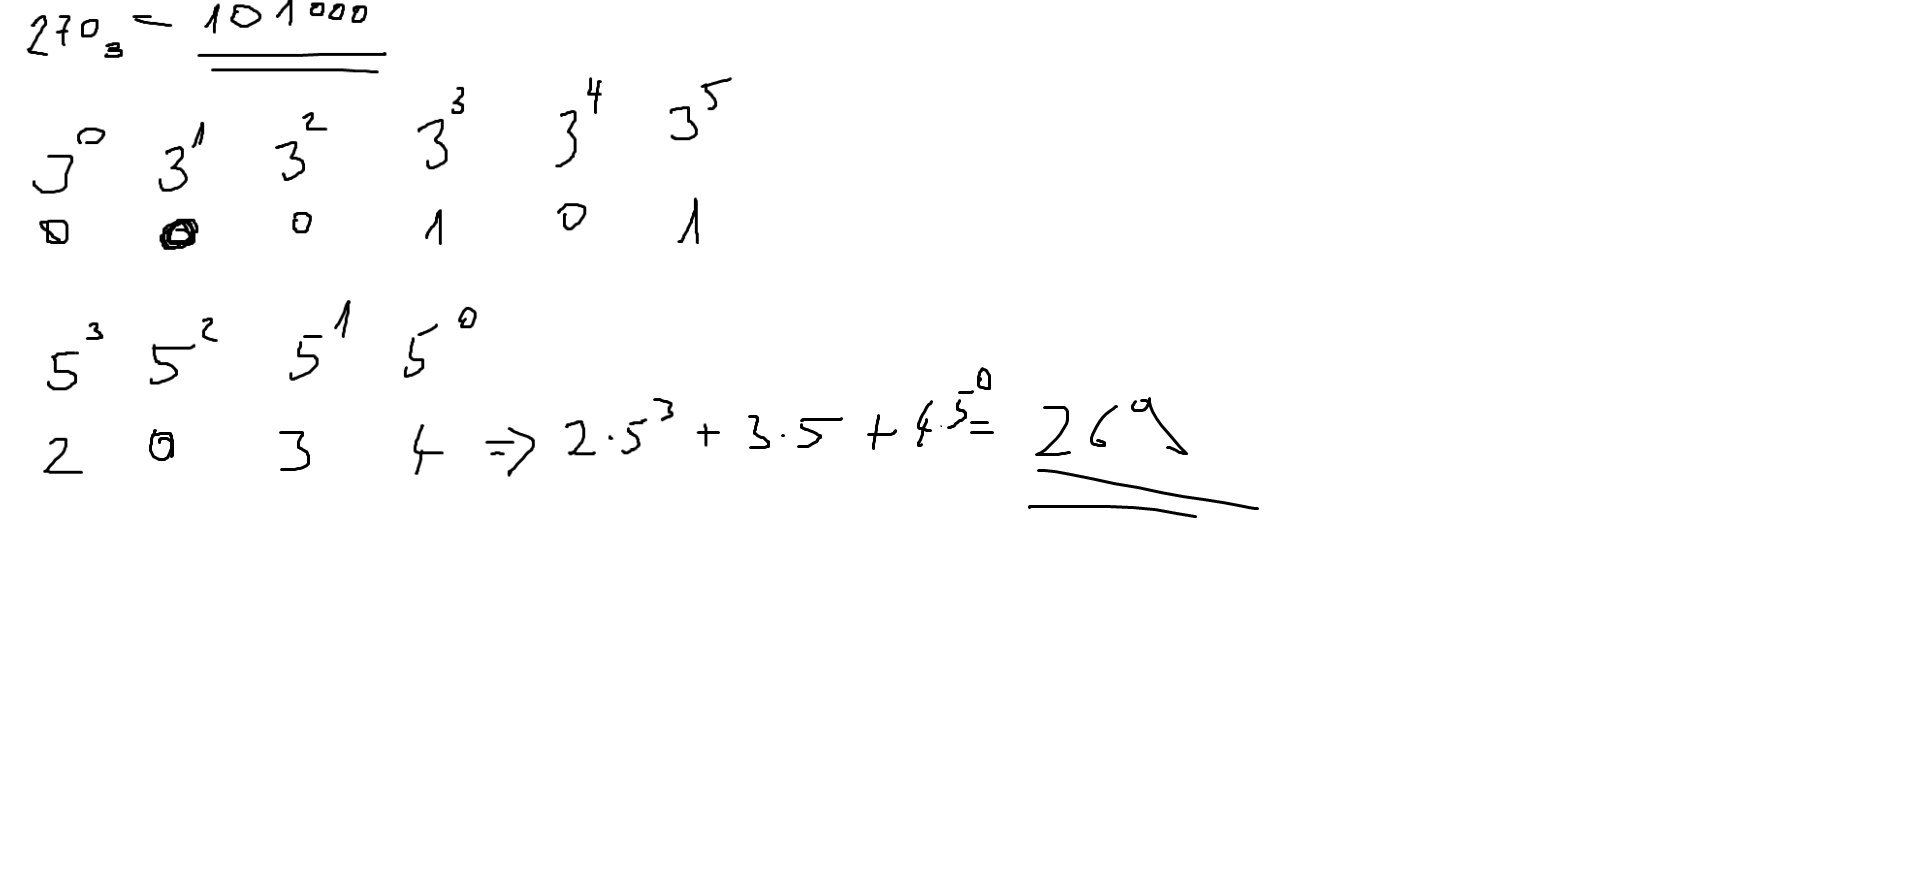 270₃ = 101000
3⁰ 3¹ 3² 3³ 3⁴ 3⁵
0 0 0 1 0 1
5³ 5² 5¹ 5⁰
2 0 3 4 => 2·5³ + 3·5 + 4·5⁰ = 269